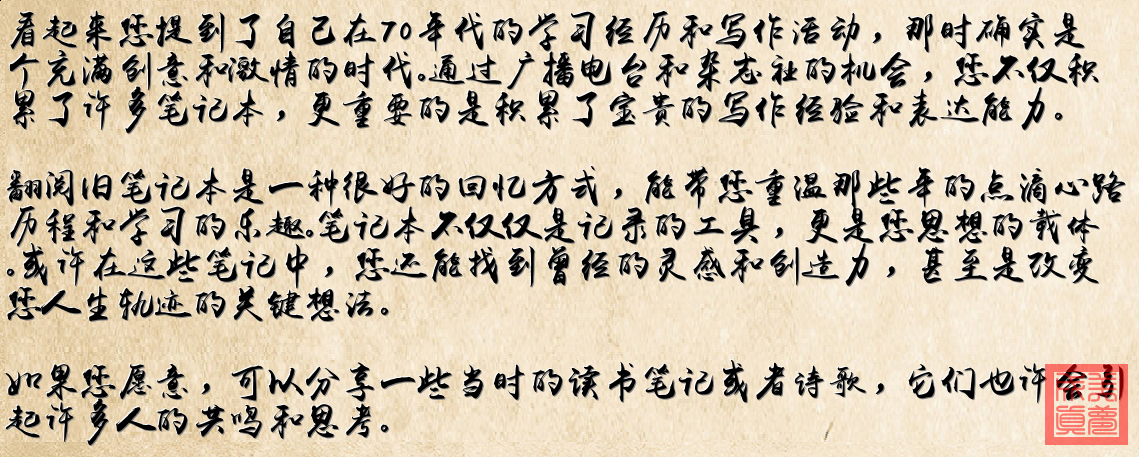 看起来您提到了自己在70年代的学习经历和写作活动，那时确实是
个充满创意和激情的时代。通过广播电台和杂志社的机会，您不仅积
累了许多笔记本，更重要的是积累了宝贵的写作经验和表达能力。
翻阅旧笔记本是一种很好的回忆方式，能带您重温那些年的点滴心路
历程和学习的乐趣。笔记本不仅仅是记录的工具，更是您思想的载体
。或许在这些笔记中，您还能找到曾经的灵感和创造力，甚至是改变
您人生轨迹的关键想法。
如果您愿意，可以分享一些当时的读书笔记或者诗歌，它们也许会引
起许多人的共鸣和思考。